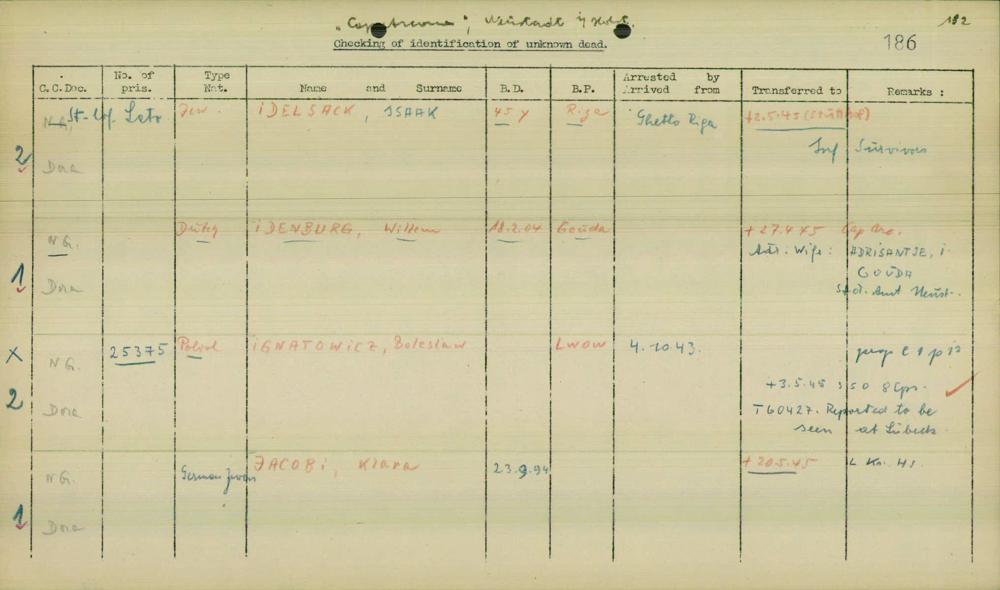 "Cap Arcona", Neustadt i/ Holst.
182
Checking of identification of unknown dead.
186
C.C.Doc. No. of pris. Type Nat. Name and Surname B.D. B.P. Arrested by Arrived from Transferred to Remarks :
N.G. Jew. IDELSACK, ISAAK 45 y Riga Ghetto Riga +2.5.45
2 Dora Inf Survivors
N.G. Dutch IDENBURG, Willem 18.2.04 Gouda +27.4.45 Cap Arc.
Adr. Wife: ADRISANTJE, i.
1 Dora GOUDA
Neust.
x N.G. 25375 Polish IGNATOWICZ, Boleslaw LWOW 4.10.43.
+3.5.45
2 Dora T60427. Reported to be
seen at Lübeck.
N.G. German Jewess JACOBI, Klara 23.9.94 +20.5.45
1 Dora